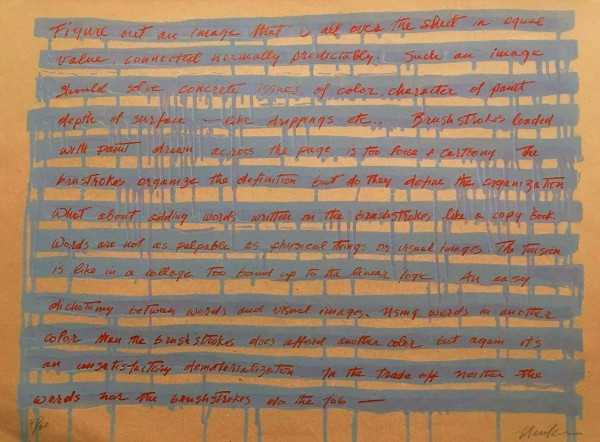 Figure out an image that is all over the sheet in equal
value, connected normally predictably. Such an image
should solve concrete issues of color, character of paint
depth of surface — like drippings etc.. Brushstrokes loaded
with paint drawn across the page is too loose & cartoony The
brustrokes organize the definition but do they define the organization
What about adding words written on the brushstrokes like a copy book
Words are not as palpable as physical things or visual images. The tension
is like in a collage too bound up to the linear logic An easy
dichotomy between words and visual images. Using words in another
color than the brushstrokes does afford another color but again it's
an unsatisfactory dematerialization In the trade off neither the
words nor the brushstrokes do the job —